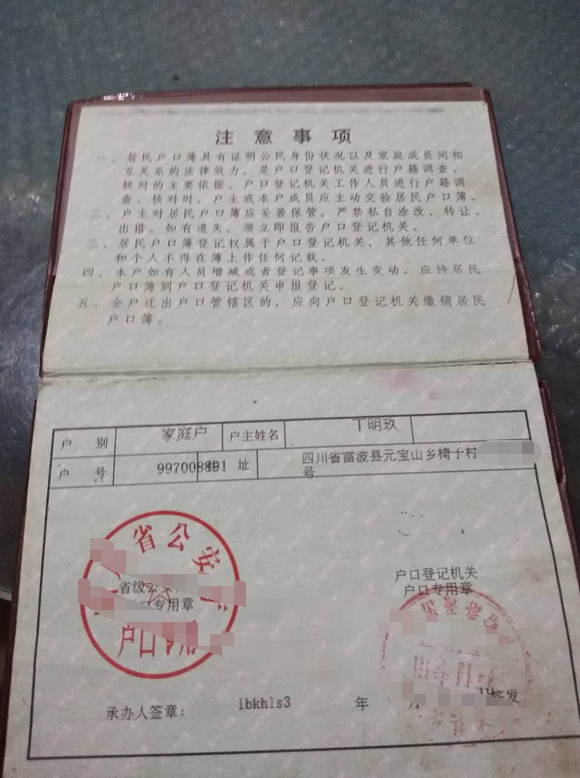 注意事项
一、居民户口薄具有证明公民身份状况以及家庭成员间相
互关系的法律效力，是户口登记机关进行户籍调查、
核对的主要依据。户口登记机关工作人员进行户籍调
查、核对时，户主或本户成员应主动交验居民户口簿。
二、户主对居民户口簿应妥善保管，严禁私自涂改、转让、
出借。如有遗失，须立即报告户口登记机关。
三、居民户口簿登记权属于户口登记机关，其他任何单位
和个人不得在簿上作任何记载。
四、本户如有人员增减或者登记事项发生变动，应持居民
户口簿到户口登记机关申报登记。
五、全户迁出户口管辖区的，应向户口登记机关缴销居民
户口簿。
户 别 家庭户 户主姓名 丁明玖
户 号 997008891 住 址 四川省富波县元宝山乡椅子村
号
省公安厅
省级公
户口专用章
户口专用
户口登记机关
户口专用章
承办人签章： lbkhls3 年 月 签发